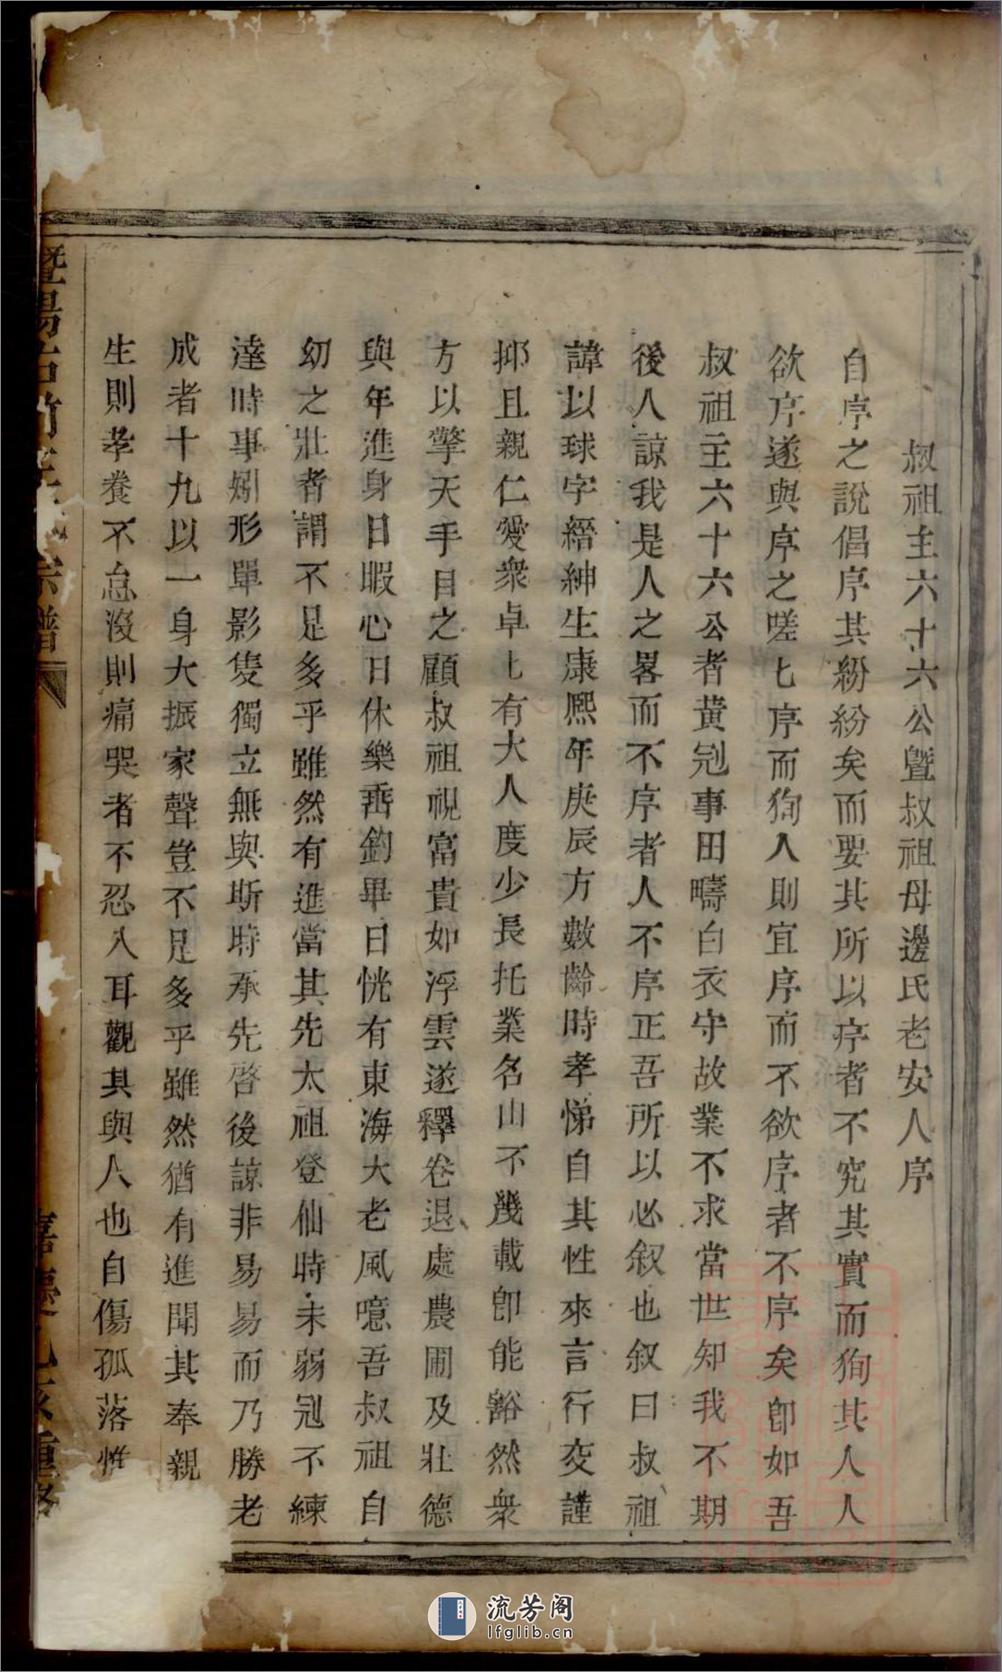 叔祖主六十六公暨叔祖母邊氏老安人序
自序之說倡序其紛紛矣而要其所以序者不究其實而狥其人人
欲序遂與序之嗟匕序而狥人則宜序而不欲序者不序矣卽如吾
叔祖主六十六公者黄冠事田疇白衣守故業不求當世知我不期
後人諒我是人之畧而不序者人不序正吾所以必叙也叙曰叔祖
諱以球字縉紳生康熙年庚辰方數齡時孝悌自其性來言行交謹
抑且親仁愛衆卓匕有大人度少長托業名山不幾載卽能豁然衆
方以擎天手目之顧叔祖視富貴如浮雲遂釋卷退處農圃及壯德
與年進身日暇心日休樂畨釣畢日恍有東海大老風噫吾叔祖自
幼之壯者謂不足多乎雖然有進當其先太祖登仙時未弱冠不練
達時事矧形單影隻獨立無與斯時承先啓後諒非易易而乃勝老
成者十九以一身大振家聲豈不足多乎雖然猶有進聞其奉親
生則孝養不怠沒則痛哭者不忍入耳觀其與人也自傷孤落惟
暨陽古竹
宗譜
嘉慶乙亥重修
流芳阁
lfglib.cn